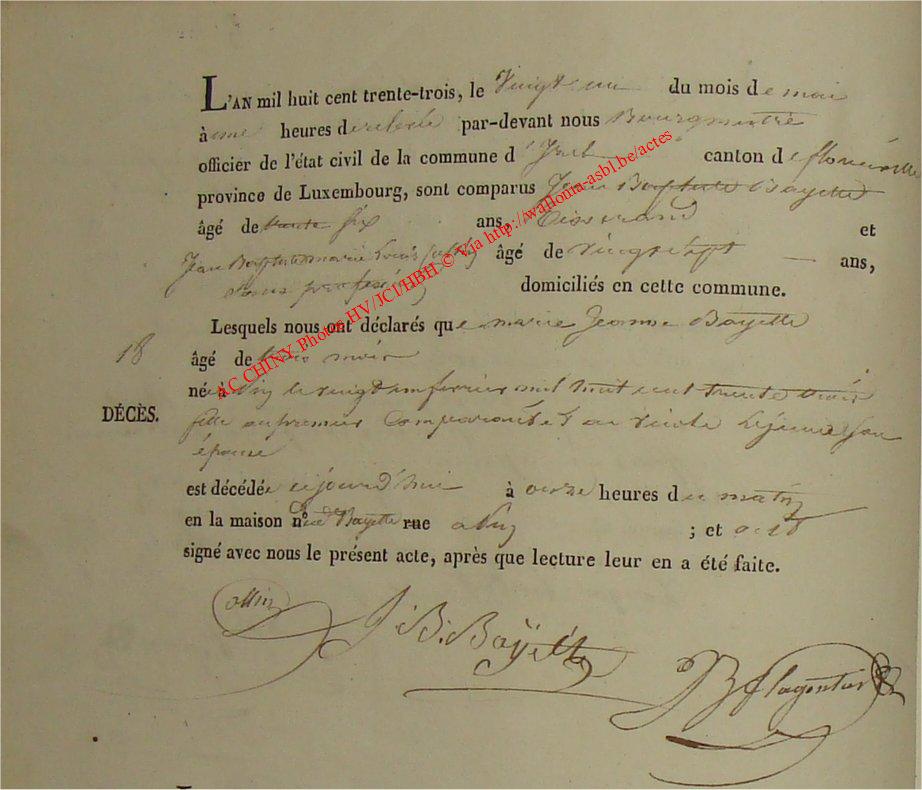 L'AN mil huit cent trente-trois, le Vingt un du mois de mai
à une heures de relevée par-devant nous Bourgmestre
officier de l'état civil de la commune d' canton de florenville
province de Luxembourg, sont comparus Jean Baptiste Bayette
âgé de trente six ans, Tisserand et
Jean Baptiste marie Louis âgé de vingt sept ans,
sans profession domiciliés en cette commune.
Lesquels nous ont déclarés que marie Jeanne Bayette
18
âgé de trois mois
né à le vingt un fevrier mil huit cent trente trois
DÉCÈS.
fille au premier Comparant et Lejeune son
épouse
est décédée cejourd'hui à onze heures du matin
en la maison n° de Bayette rue ; et ont
signé avec nous le présent acte, après que lecture leur en a été faite.
J. B. Bayette
AC CHINY Photos HV/JCI/HBH © Via http://wallonia-asbl.be/actes